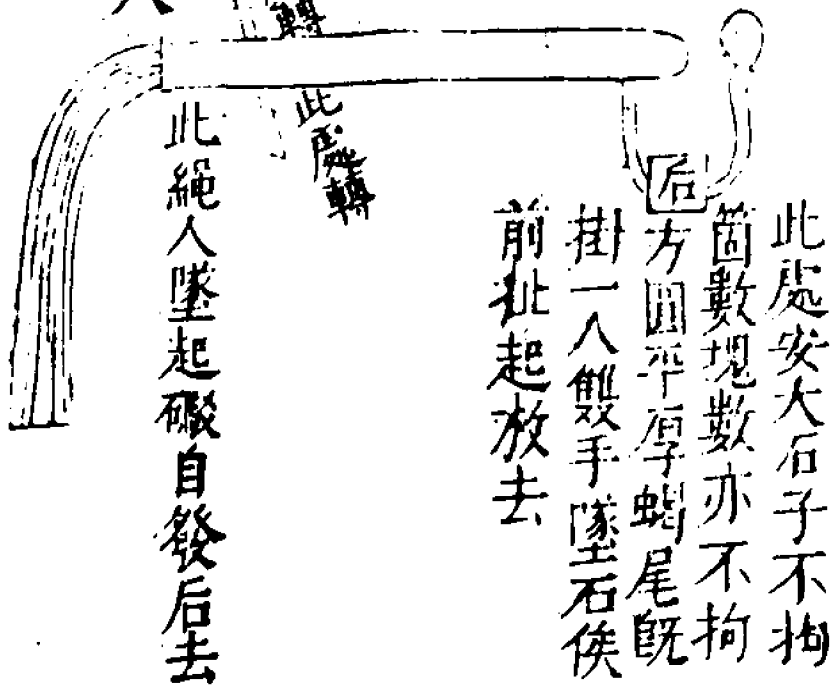 此處安大石子不拘
箇數塊數亦不拘
方圓平厚蝎尾既
掛一人雙手墜石俟
前扯起放去
后
轉
此處轉
此繩人墜起礟自發后去